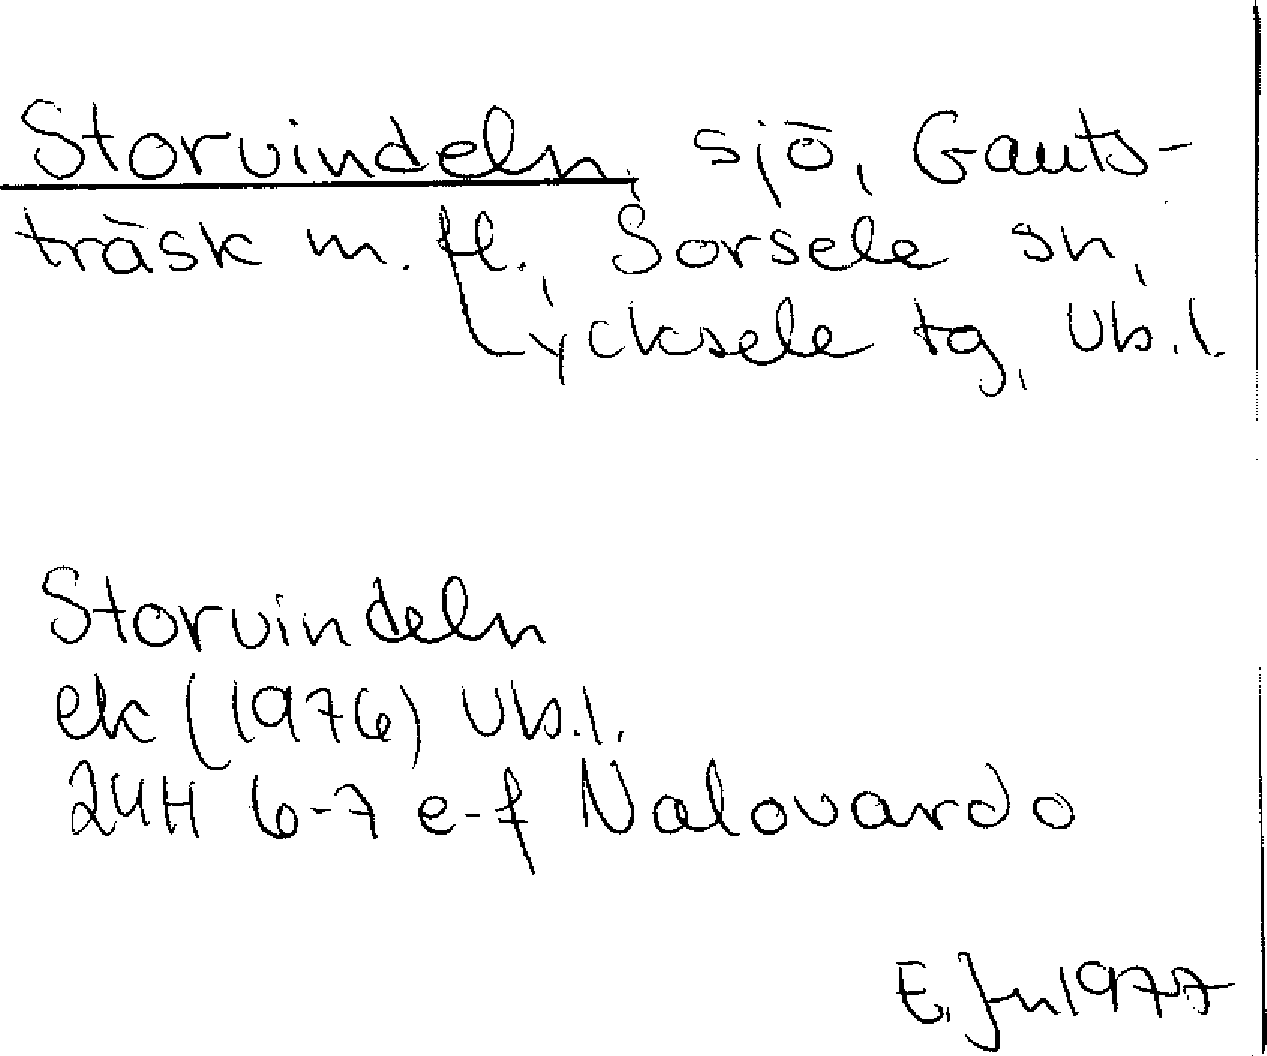 Storvindeln, sjö, Gauts-
träsk m. fl., Sorsele sn,
Lycksele tg, Vb.l.
Storvindeln
ek (1976) Vb.l.
24H 6-7 e-f Nalovardo
E. Jn 1977